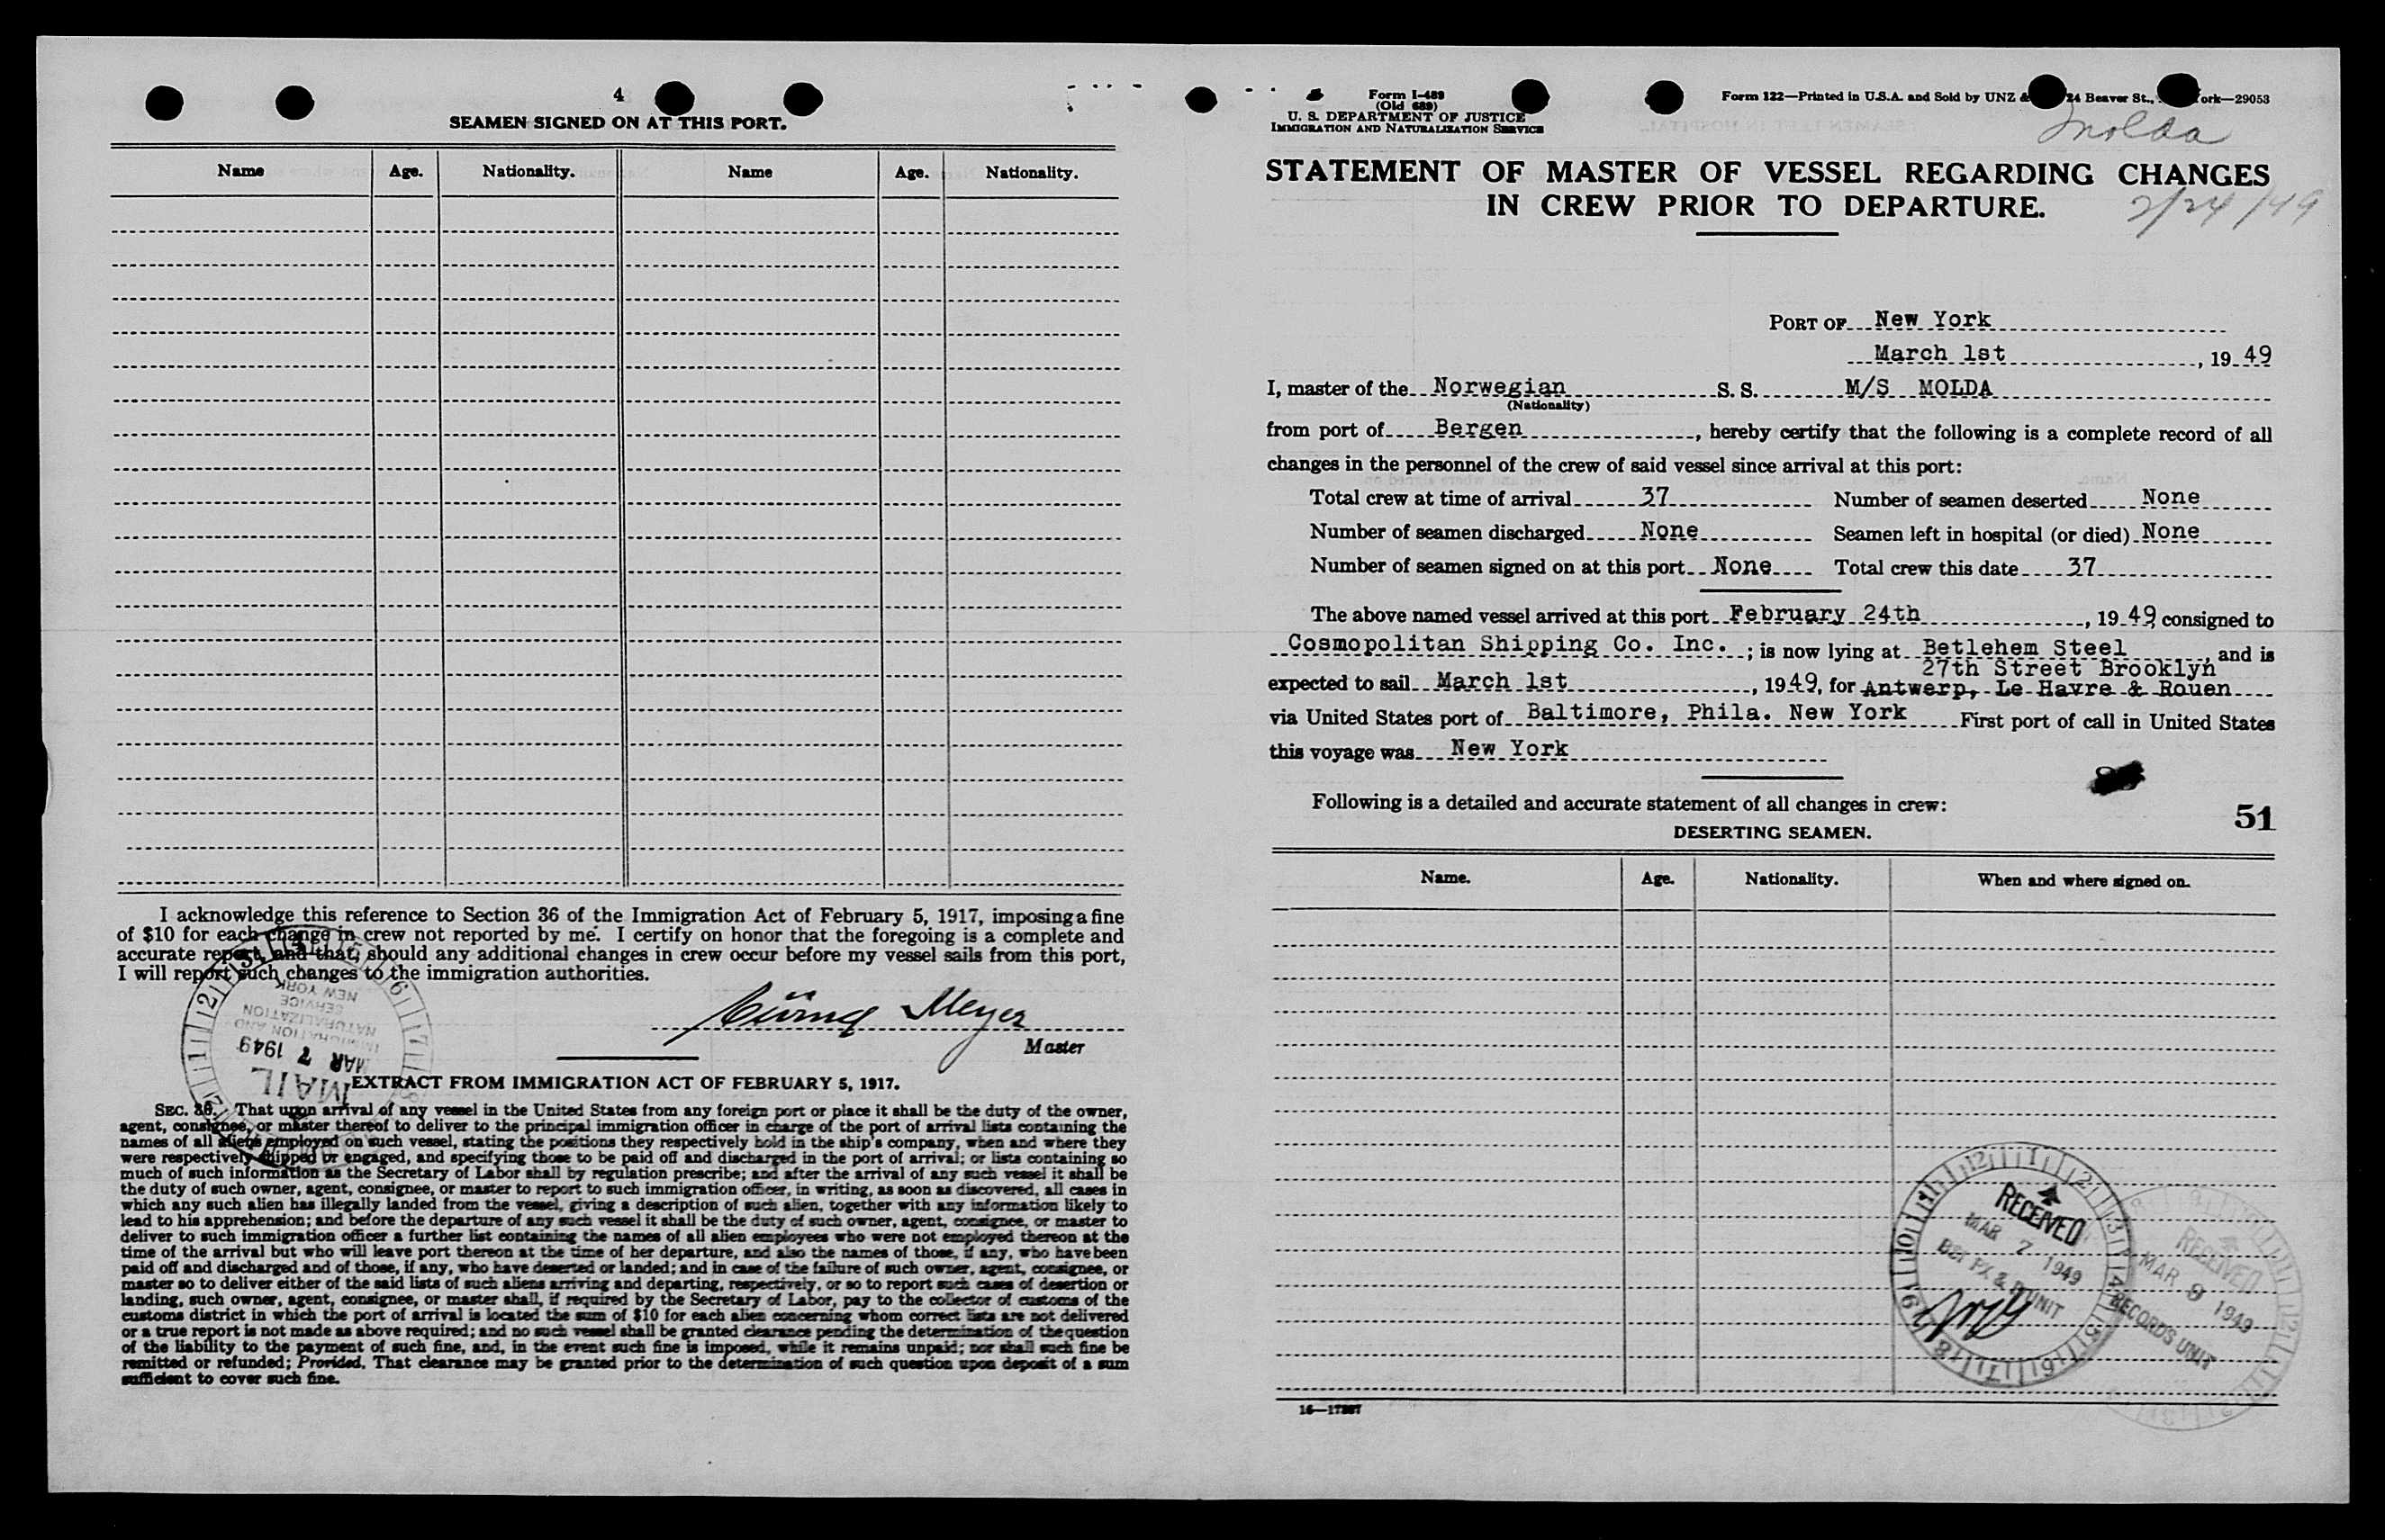 4
SEAMEN SIGNED ON AT THIS PORT.
Name Age. Nationality. Name Age. Nationality.
I acknowledge this reference to Section 36 of the Immigration Act of February 5, 1917, imposing a fine
of $10 for each change in crew not reported by me. I certify on honor that the foregoing is a complete and
accurate report, and that, should any additional changes in crew occur before my vessel sails from this port,
I will report such changes to the immigration authorities.
Meyer
Master
MAIL
MAR 7 1949
IMMIGRATION AND
NATURALIZATION
SERVICE
NEW YORK
EXTRACT FROM IMMIGRATION ACT OF FEBRUARY 5, 1917.
SEC. 36. That upon arrival of any vessel in the United States from any foreign port or place it shall be the duty of the owner,
agent, consignee, or master thereof to deliver to the principal immigration officer in charge of the port of arrival lists containing the
names of all aliens employed on such vessel, stating the positions they respectively hold in the ship's company, when and where they
were respectively shipped or engaged, and specifying those to be paid off and discharged in the port of arrival; or lists containing so
much of such information as the Secretary of Labor shall by regulation prescribe; and after the arrival of any such vessel it shall be
the duty of such owner, agent, consignee, or master to report to such immigration officer, in writing, as soon as discovered, all cases in
which any such alien has illegally landed from the vessel, giving a description of such alien, together with any information likely to
lead to his apprehension; and before the departure of any such vessel it shall be the duty of such owner, agent, consignee, or master to
deliver to such immigration officer a further list containing the names of all alien employees who were not employed thereon at the
time of the arrival but who will leave port thereon at the time of her departure, and also the names of those, if any, who have been
paid off and discharged and of those, if any, who have deserted or landed; and in case of the failure of such owner, agent, consignee, or
master so to deliver either of the said lists of such aliens arriving and departing, respectively, or so to report such cases of desertion or
landing, such owner, agent, consignee, or master shall, if required by the Secretary of Labor, pay to the collector of customs of the
customs district in which the port of arrival is located the sum of $10 for each alien concerning whom correct lists are not delivered
or a true report is not made as above required; and no such vessel shall be granted clearance pending the determination of the question
of the liability to the payment of such fine, and, in the event such fine is imposed, while it remains unpaid; nor shall such fine be
remitted or refunded; Provided, That clearance may be granted prior to the determination of such question upon deposit of a sum
sufficient to cover such fine.
Form I-489
(Old 689)
U. S. DEPARTMENT OF JUSTICE
IMMIGRATION AND NATURALIZATION SERVICE
Form 122—Printed in U.S.A. and Sold by UNZ & 24 Beaver St., ork—29053
Molda
STATEMENT OF MASTER OF VESSEL REGARDING CHANGES
IN CREW PRIOR TO DEPARTURE.
2/24/49
PORT OF New York
March 1st, 19 49
I, master of the Norwegian S. S. M/S MOLDA
(Nationality)
from port of Bergen, hereby certify that the following is a complete record of all
changes in the personnel of the crew of said vessel since arrival at this port:
Total crew at time of arrival 37 Number of seamen deserted None
Number of seamen discharged None Seamen left in hospital (or died) None
Number of seamen signed on at this port None Total crew this date 37
The above named vessel arrived at this port February 24th, 19 49 consigned to
Cosmopolitan Shipping Co. Inc.; is now lying at Betlehem Steel and is
27th Street Brooklyn
expected to sail March 1st, 19 49, for Antwerp, Le Havre & Rouen
via United States port of Baltimore, Phila. New York First port of call in United States
this voyage was New York
Following is a detailed and accurate statement of all changes in crew:
51
DESERTING SEAMEN.
Name. Age. Nationality. When and where signed on.
RECEIVED
MAR 7 1949
UNIT
RECEIVED
MAR 9 1949
RECORDS UNIT